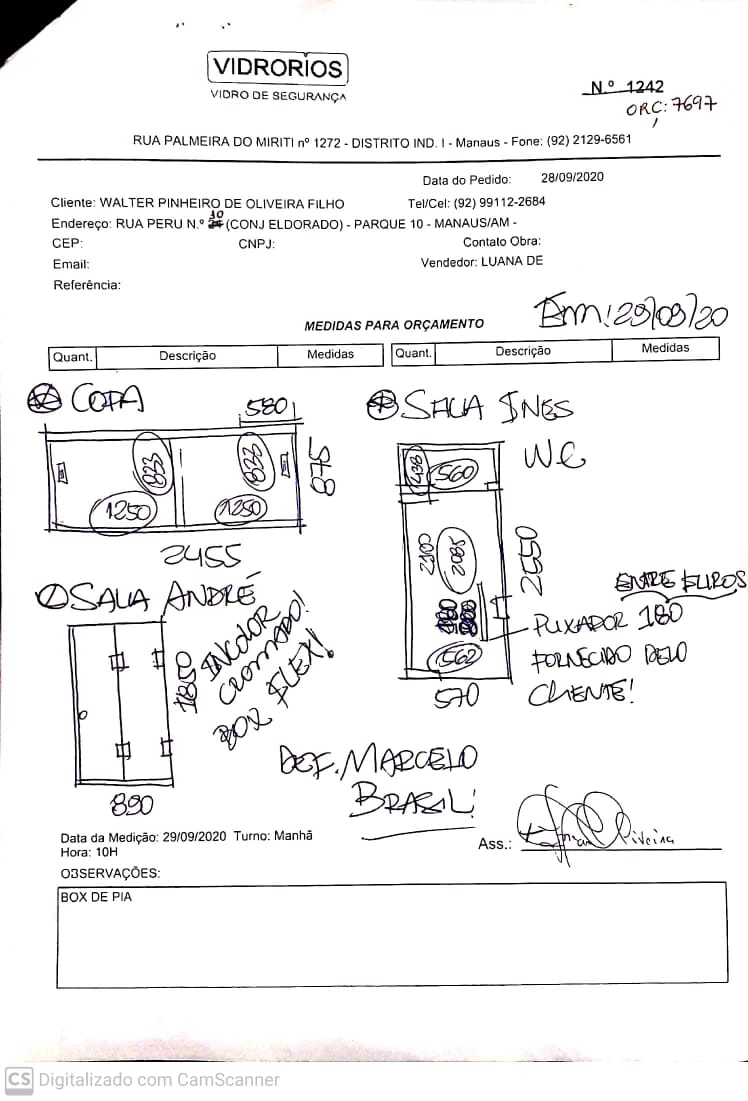 VIDRORIOS
VIDRO DE SEGURANÇA
N.º 1242
ORÇ: 7697
RUA PALMEIRA DO MIRITI nº 1272 - DISTRITO IND. I - Manaus - Fone: (92) 2129-6561
Data do Pedido: 28/09/2020
Cliente: WALTER PINHEIRO DE OLIVEIRA FILHO Tel/Cel: (92) 99112-2684
Endereço: RUA PERU N.º 10 (CONJ ELDORADO) - PARQUE 10 - MANAUS/AM -
CEP: CNPJ: Contato Obra:
Email: Vendedor: LUANA DE
Referência:
MEDIDAS PARA ORÇAMENTO
Em: 29/09/20
Quant. Descrição Medidas Quant. Descrição Medidas
COPA
580
833 833
1250 1250
878
2455
SALA INES
WC
438 560
2100 2085
2550
562
570
ENTRE FUROS
PUXADOR 180
FORNECIDO PELO
CLIENTE!
SALA ANDRÉ
1850
INCOLOR
CROMADO!
BOX FLEX!
890
DEF. MARCELO
BRASIL!
Data da Medição: 29/09/2020 Turno: Manhã
Hora: 10H
Ass.: Oliveira
OBSERVAÇÕES:
BOX DE PIA
CS Digitalizado com CamScanner